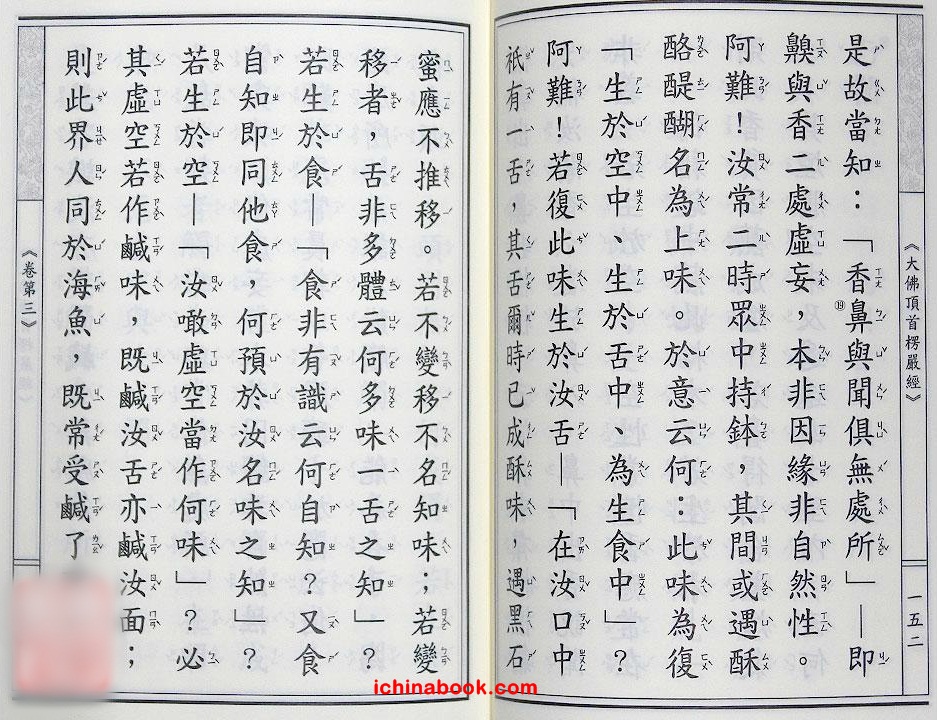 《大佛頂首楞嚴經》
一五二
是故當知：「香鼻與聞俱無處所」—即
齅與香二處虛妄，本非因緣非自然性。
⑲
阿難！汝常二時眾中持鉢，其間或遇酥
酪醍醐名為上味。於意云何：此味為復
—生於空中生於舌中為生食中」？
阿難！若復此味生於汝舌—「在汝口中
祇有一舌，其舌爾時已成酥味，遇黑石
蜜應不推移。若不變移不名知味；若變
移者，舌非多體云何多味一舌之知」？
若生於食—「食非有識云何自知？又食
自知即同他食何預於汝名味之知」？
若生於空，汝噉虛空當作何味」？必
其虛空若作鹹味，既鹹汝舌亦鹹汝面；
則此界人同於海魚，既常受鹹了
《卷第三》
ichinabook.com